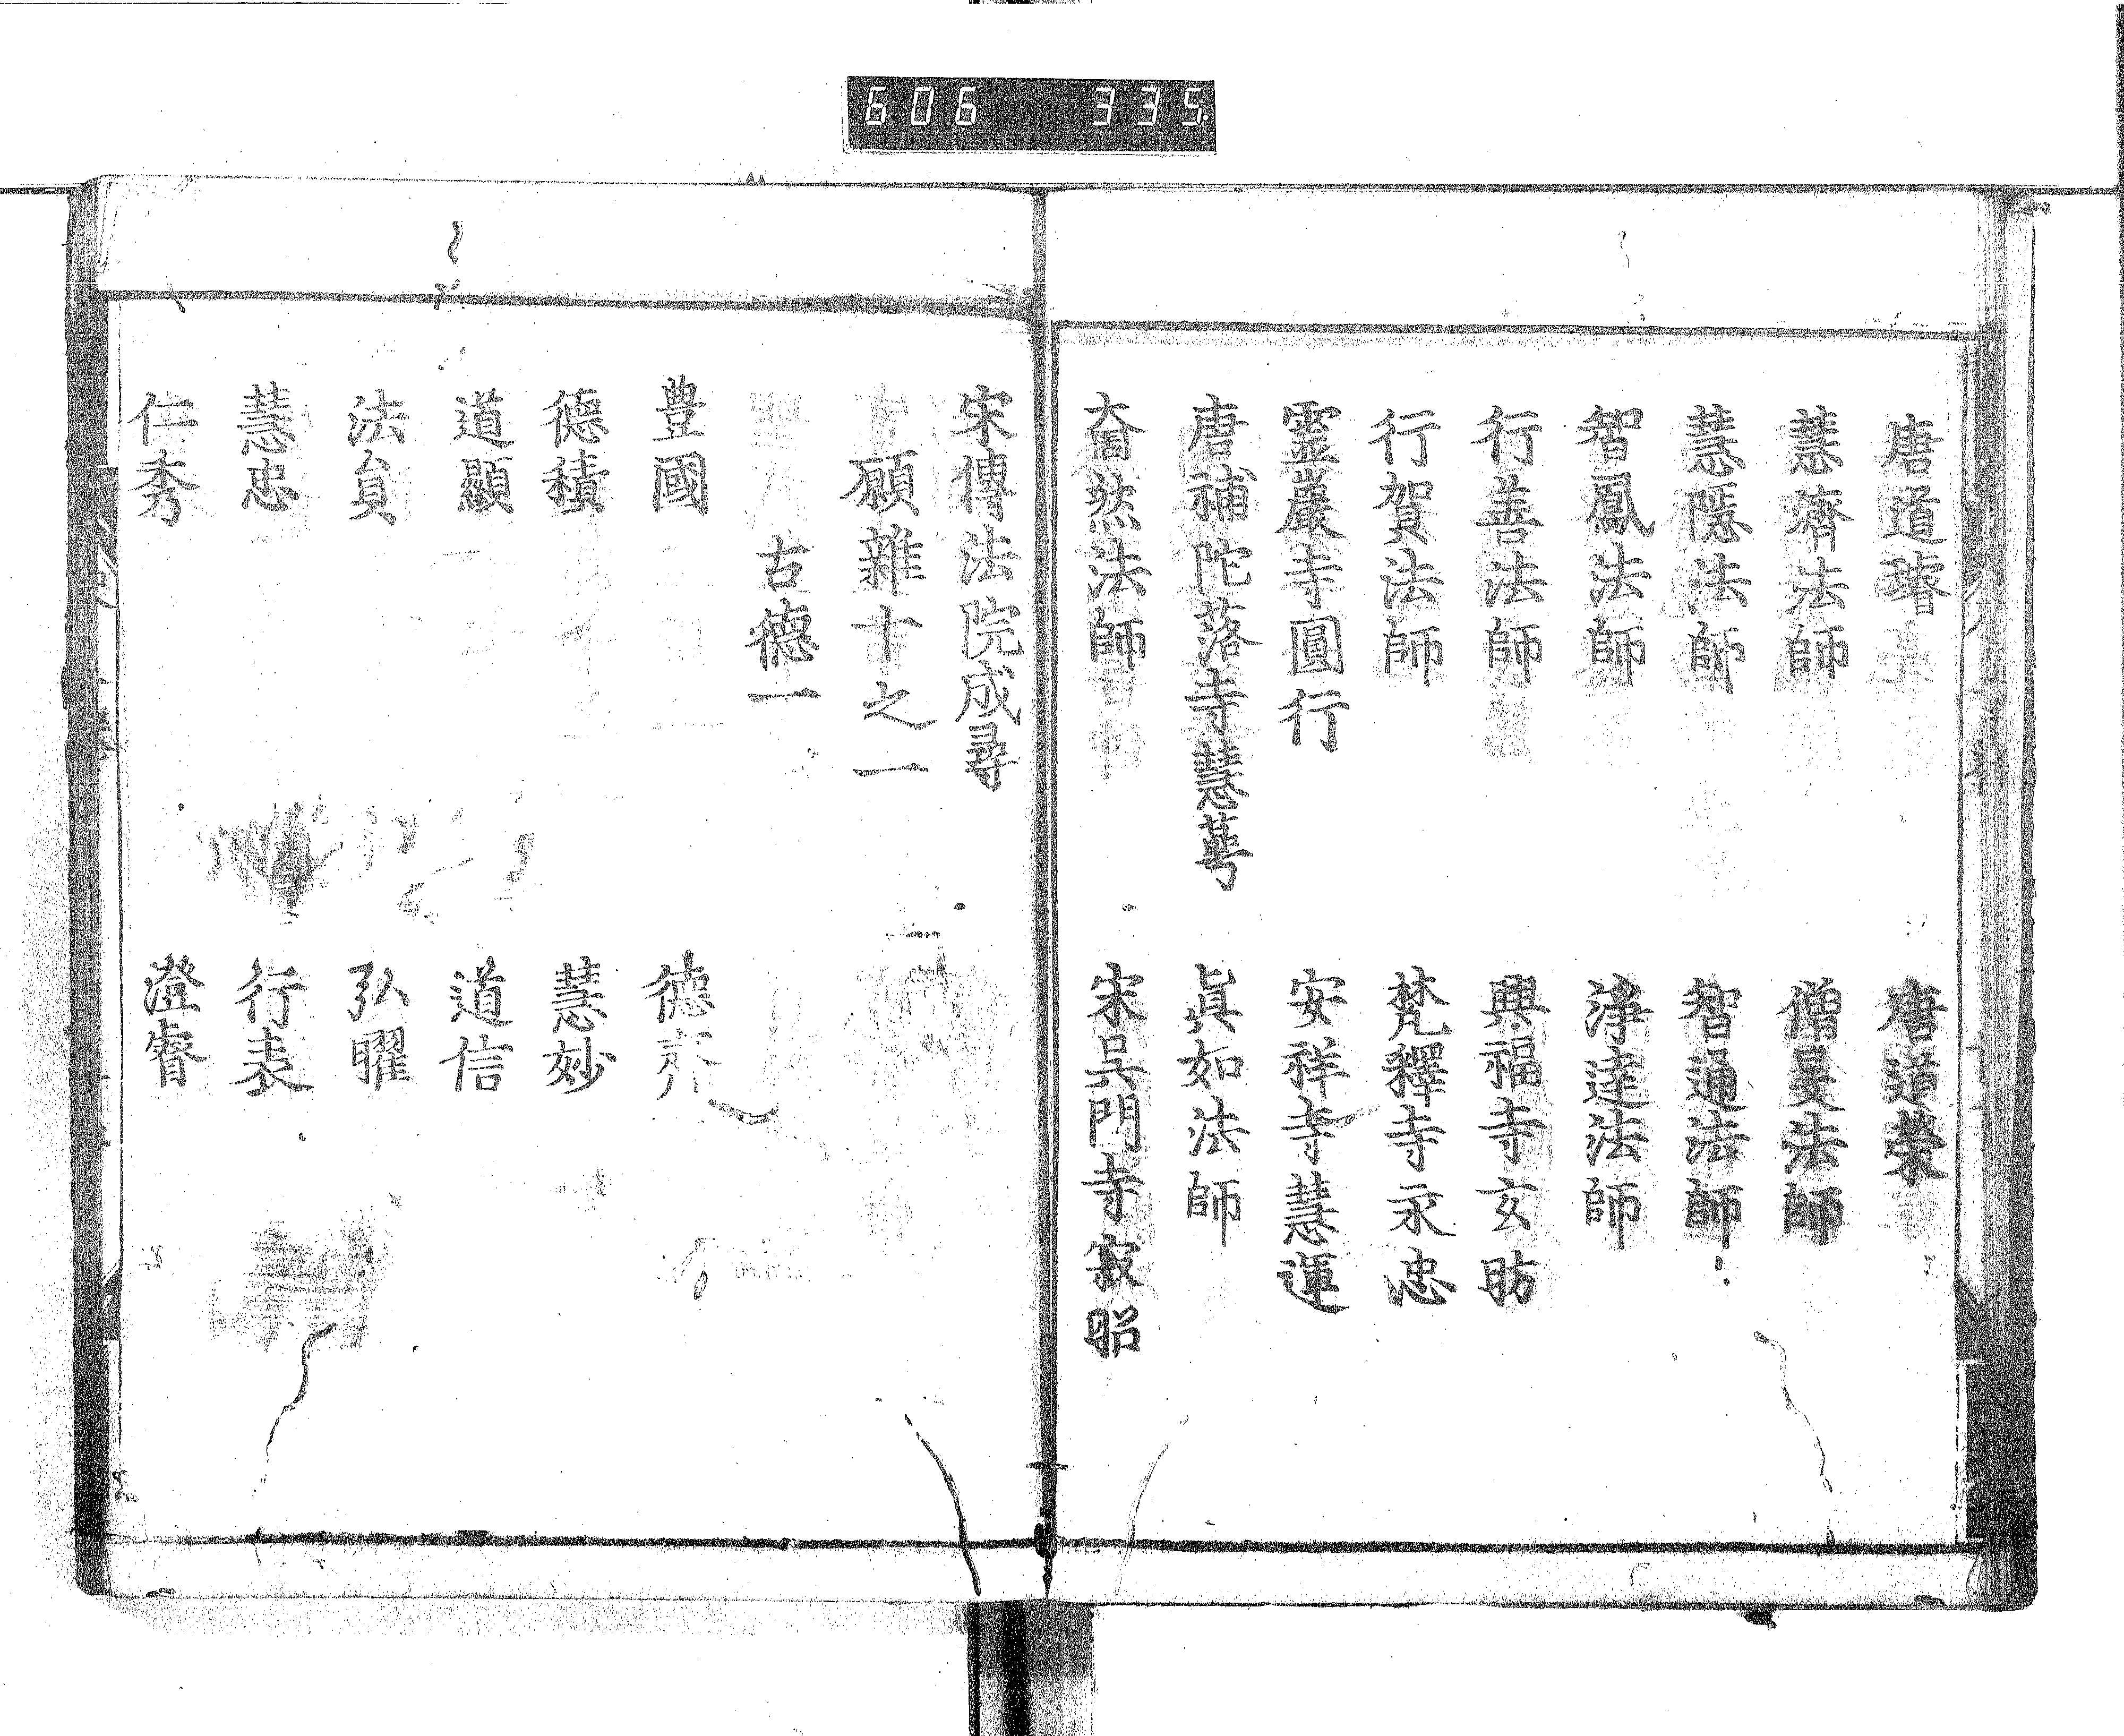 606 335
唐道璿 唐道榮
慧濟法師 僧旻法師
慧隱法師 智通法師
智鳳法師 淨達法師
行善法師 興福寺玄昉
行賀法師 梵釋寺永忠
靈巖寺圓行 安祥寺慧運
唐補陀落寺慧萼 眞如法師
奝然法師 宋吳門寺寂昭
宋傳法院成尋
願雜十之一
古德一
豊國 德齊
德積 慧妙
道顯 道信
法員 弘曜
慧忠 行表
仁秀 澄睿